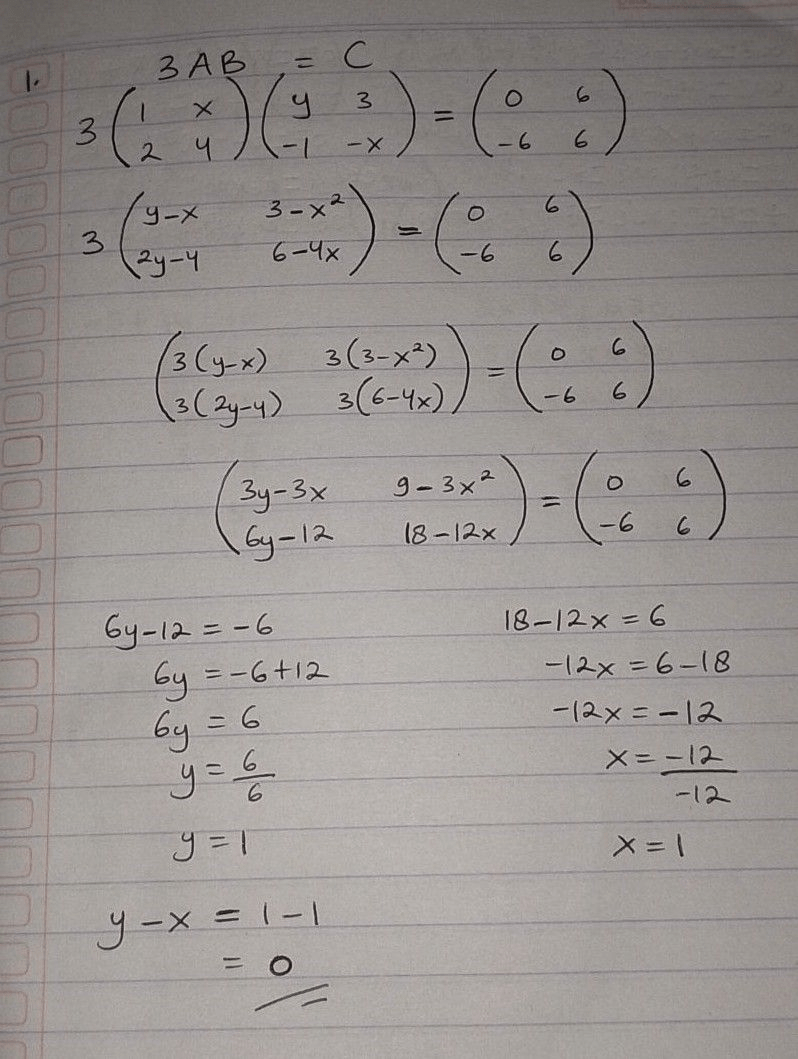 1. 3AB = C
3 (1 x 2 4) (y 3 -1 -x) = (0 6 -6 6)
3 (y-x 3-x² 2y-4 6-4x) = (0 6 -6 6)
(3(y-x) 3(3-x²) 3(2y-4) 3(6-4x)) = (0 6 -6 6)
(3y-3x 9-3x² 6y-12 18-12x) = (0 6 -6 6)
6y-12 = -6
6y = -6+12
6y = 6
y = 6/6
y = 1
18-12x = 6
-12x = 6-18
-12x = -12
x = -12/-12
x = 1
y-x = 1-1
= 0